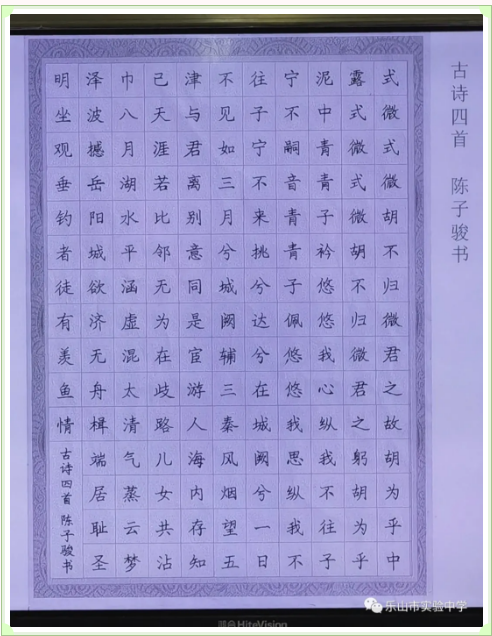 古诗四首 陈子骏书
式微式微胡不归微君之故胡为乎中
露式微式微胡不归微君之躬胡为乎
泥中青青子衿悠悠我心纵我不往子
宁不嗣音青青子佩悠悠我思纵我不
往子宁不来挑兮达兮在城阙兮一日
不见如三月兮城阙辅三秦风烟望五
津与君离别意同是宦游人海内存知
己天涯若比邻无为在歧路儿女共沾
巾八月湖水平涵虚混太清气蒸云梦
泽波撼岳阳城欲济无舟楫端居耻圣
明坐观垂钓者徒有羡鱼情
古诗四首 陈子骏书
乐山市实验中学
鸿合HiteVision